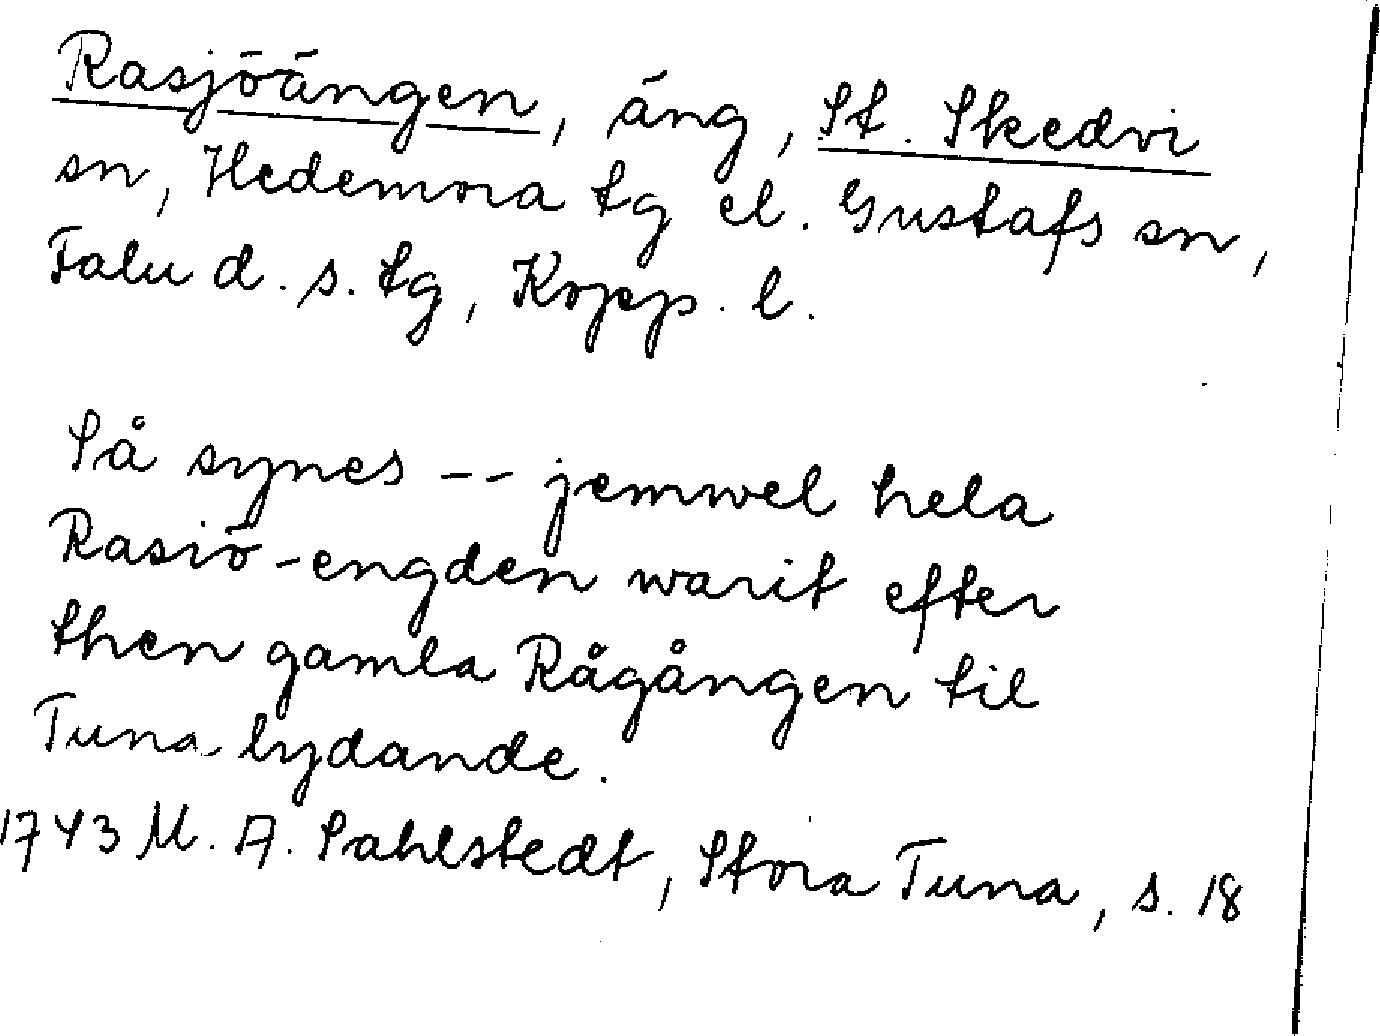 Rasjöängen, äng, St. Skedvi
sn, Hedemora tg el. Gustafs sn,
Falu d. s. tg, Kopp. l.
Så synes -- jemwel hela
Rasiö-engden warit efter
then gamla Rågången til
Tuna lydande.
1743 M. A. Sahlstedt, Stora Tuna, s. 18